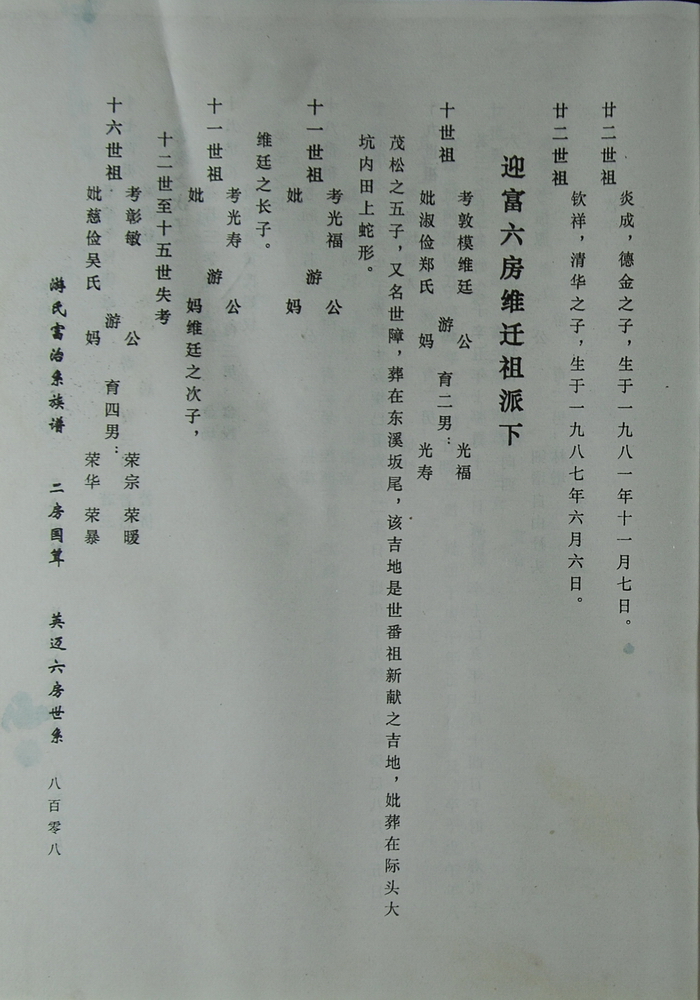 廿二世祖 炎成，德金之子，生于一九八一年十一月七日。
廿二世祖 钦祥，清华之子，生于一九八七年六月六日。
迎富六房维迁祖派下
十世祖 考敦模维廷 妣淑俭郑氏 游 公 妈 育二男： 光福 光寿
茂松之五子，又名世障，葬在东溪坂尾，该吉地是世番祖新献之吉地，妣葬在际头大
坑内田上蛇形。
十一世祖 考光福 妣 游 公 妈
维廷之长子。
十一世祖 考光寿 妣 游 公 妈维廷之次子，
十二世至十五世失考
十六世祖 考彰敏 妣慈俭吴氏 游 公 妈 育四男： 荣宗 荣暧 荣华 荣暴
游氏富治系族谱 二房国算 英迈六房世系 八百零八